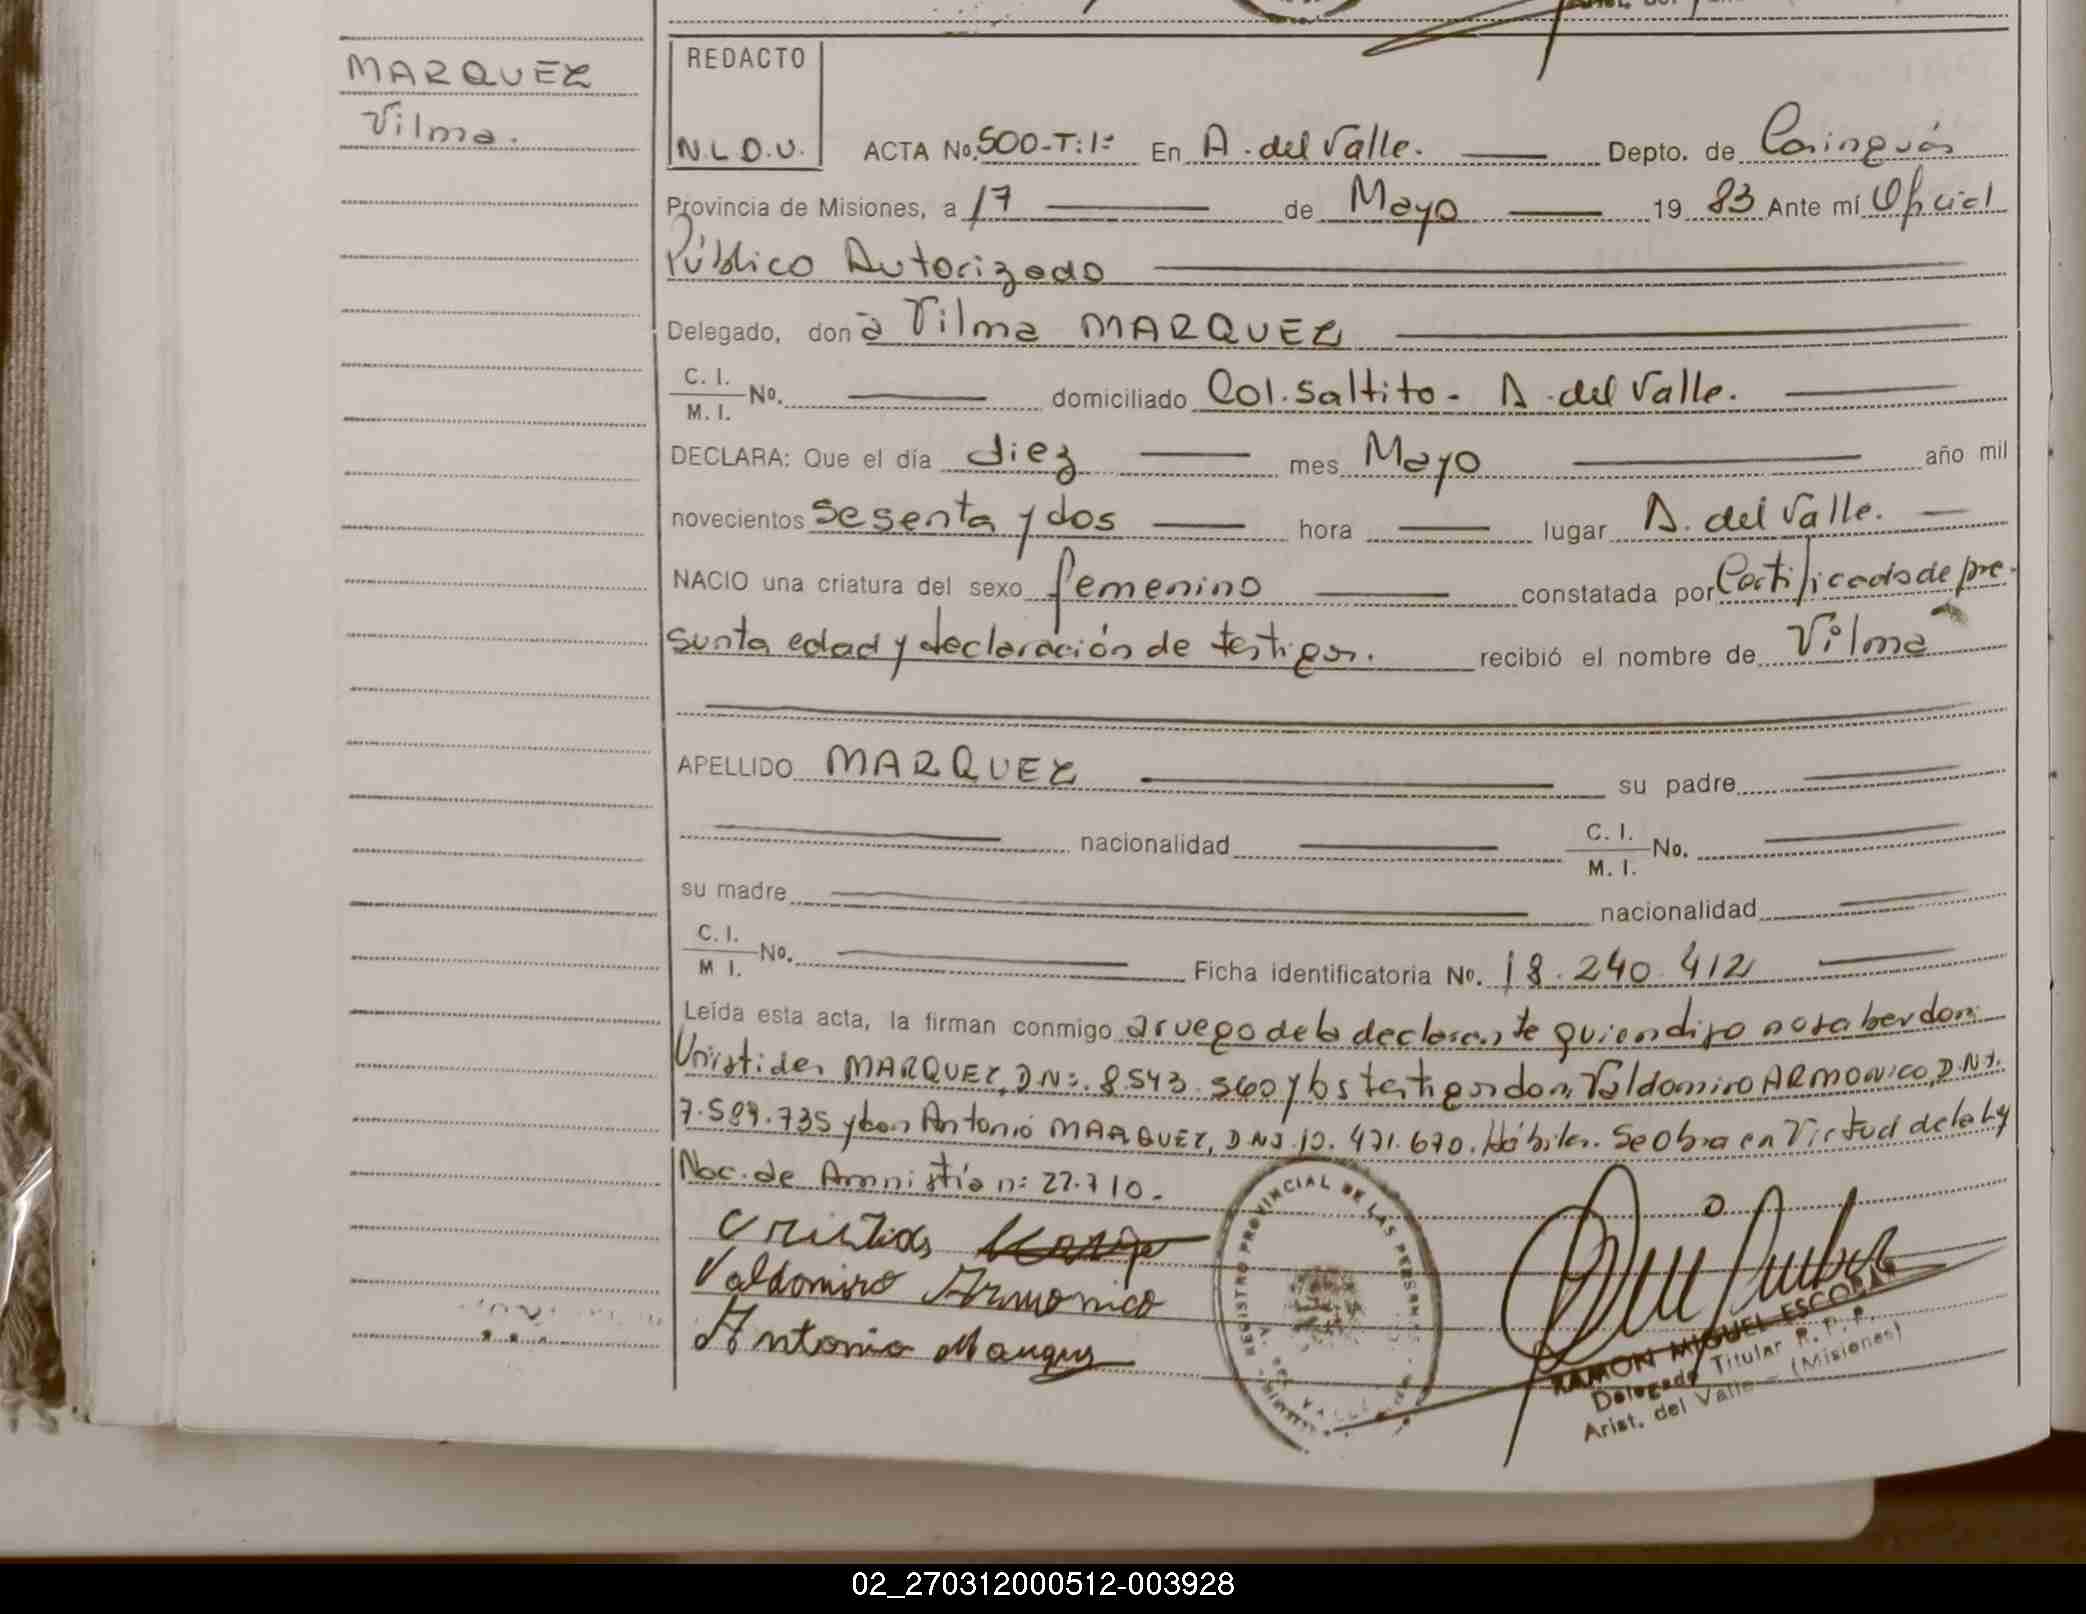 MARQUEZ
Vilma.
REDACTO
N.L.D.V.
ACTA No. 500-T:1º En A. del Valle. Depto. de Cainguás
Provincia de Misiones, a 17 de Mayo 19 83 Ante mí Oficial
Público Autorizado
Delegado, don a Vilma MARQUEZ
C. I.
M. I. No. domiciliado Col. Saltito - A. del Valle.
DECLARA: Que el día diez mes Mayo año mil
novecientos sesenta y dos hora lugar A. del Valle.
NACIO una criatura del sexo femenino constatada por Certificado de pre-
sunta edad y declaración de testigos. recibió el nombre de Vilma
APELLIDO MARQUEZ su padre
nacionalidad C. I.
M. I. No.
su madre nacionalidad
C. I.
M I. No. Ficha identificatoria No. 18.240.412
Leída esta acta, la firman conmigo a ruego de la declarante quien dijo no saber don:
MARQUEZ, D.N: 8.543.560 y los testigos don, Valdomiro ARMONICO, D.N.I.
7.589.735 y don Antonio MARQUEZ, D.N.I. 471.670. Hábiles. Se obra en Virtud de la Ley
Nac. de Amnistía nº 22.710.
Valdomiro Armonico
Antonio
REGISTRO PROVINCIAL DE LAS PERSONAS
RAMON MIGUEL ESCOBAR
Delegado Titular R. P. P.
Arist. del Valle - (Misiones)
02_270312000512-003928